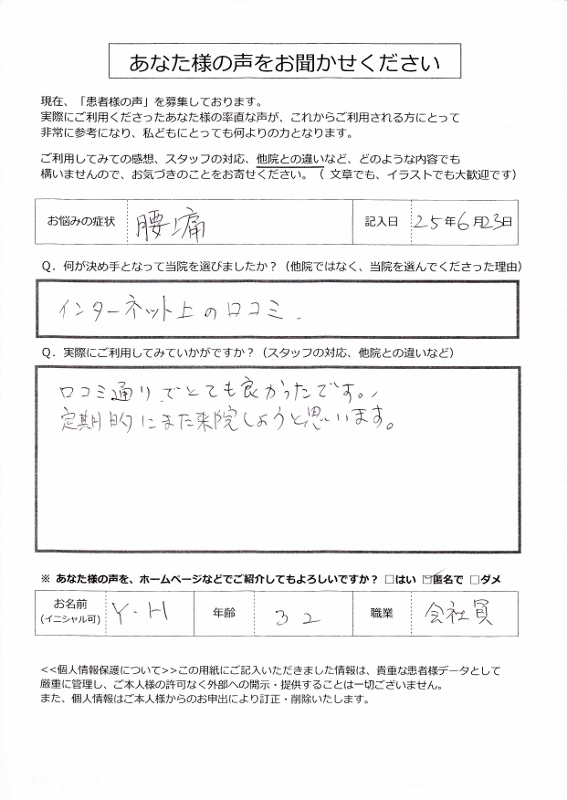 あなた様の声をお聞かせください
現在、「患者様の声」を募集しております。
実際にご利用くださったあなた様の率直な声が、これからご利用される方にとって
非常に参考になり、私どもにとっても何よりの力となります。
ご利用してみての感想、スタッフの対応、他院との違いなど、どのような内容でも
構いませんので、お気づきのことをお寄せください。（ 文章でも、イラストでも大歓迎です）
お悩みの症状 腰痛 記入日 25年6月23日
Q．何が決め手となって当院を選びましたか？（他院ではなく、当院を選んでくださった理由）
インターネット上の口コミ．
Q．実際にご利用してみていかがですか？（スタッフの対応、他院との違いなど）
口コミ通りでとても良かったです。
定期的にまた来院しようと思います。
※ あなた様の声を、ホームページなどでご紹介してもよろしいですか？ □はい ☑匿名で □ダメ
お名前 (イニシャル可) Y．H 年齢 32 職業 会社員
<<個人情報保護について>>この用紙にご記入いただきました情報は、貴重な患者様データとして
厳重に管理し、ご本人様の許可なく外部への開示・提供することは一切ございません。
また、個人情報はご本人様からのお申出により訂正・削除いたします。